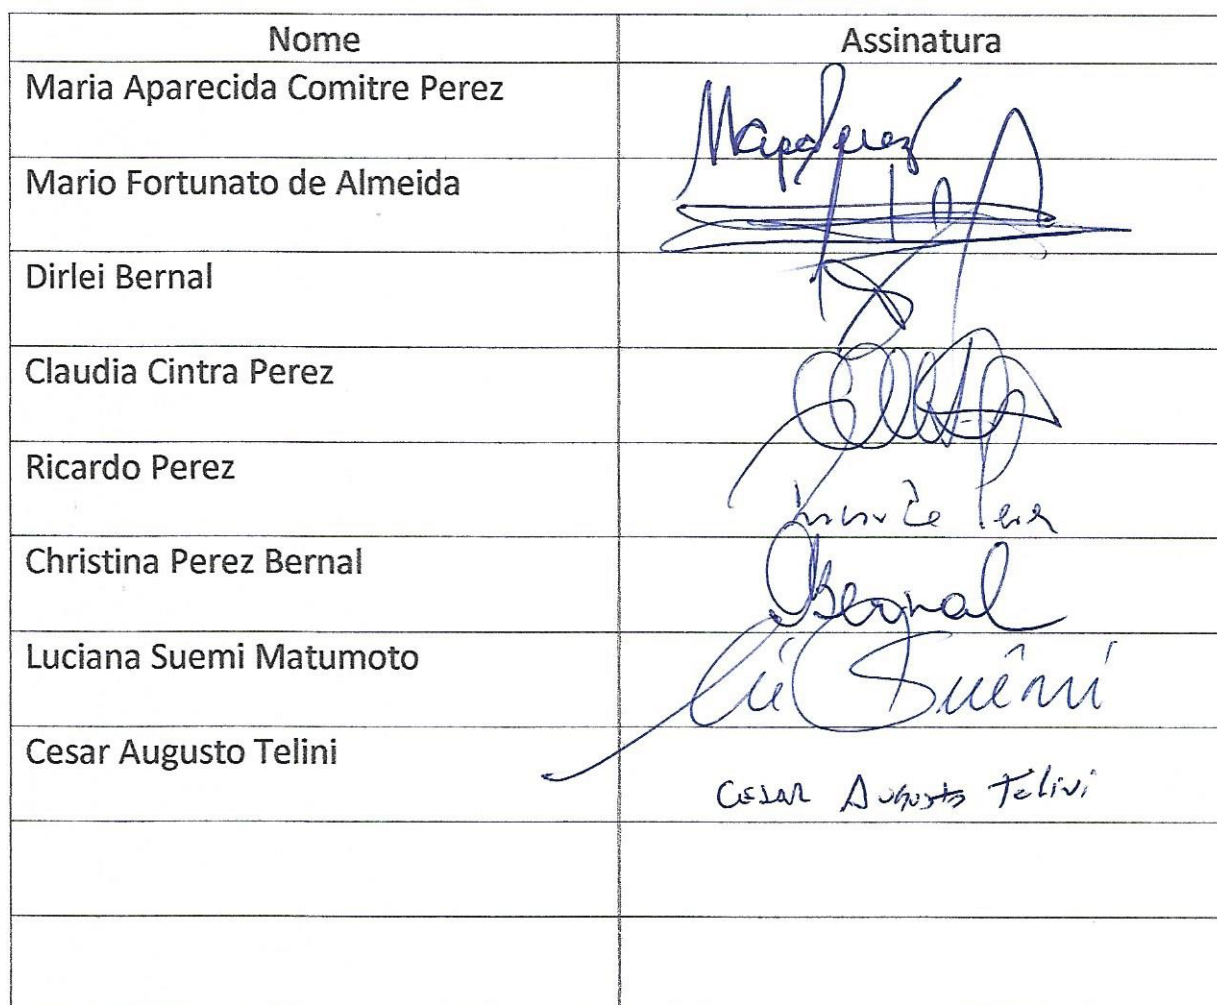 Nome Assinatura
Maria Aparecida Comitre Perez
Mario Fortunato de Almeida
Dirlei Bernal
Claudia Cintra Perez
Ricardo Perez
Christina Perez Bernal Bernal
Luciana Suemi Matumoto Suêmi
Cesar Augusto Telini
Cesar Augusto Telini